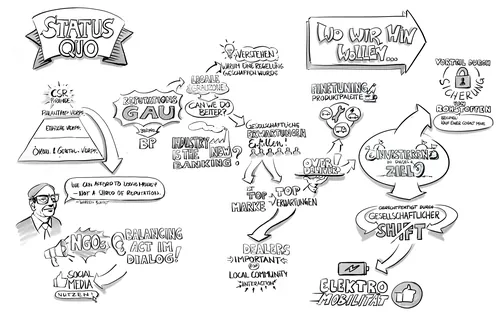 STATUS
QUO
CSR
PHILANTHR. VERANTW.
ETHISCHE VERANTW.
ÖKONOM. & GESETZL. VERANTW.
"WE CAN AFFORD TO LOSE MONEY
NOT A SHRED OF REPUTATION."
WARREN BUFFET
NGOs
BALANCING
ACT IM
DIALOG!
SOCIAL
MEDIA
NUTZEN
REPUTATIONS
GAU
BEISPIEL
BP
VERSTEHEN
WARUM EINE REGELUNG
GESCHAFFEN WURDE
LEGALE
CAN WE DO
BETTER?
INDUSTRY
IS THE NEW
BANKING?
GESELLSCHAFTLICHE
ERWARTUNGEN
Erfüllen!
TOP
MARKE
TOP
ERWARTUNGEN
DEALERS
IMPORTANT
FOR
LOCAL COMMUNITY
INTERACTION
OVER
DELIVER
WO WIR HIN
WOLLEN...
FINETUNING
PRODUKTPALETTE
VORTEIL DURCH
SICHERUNG
VON
ROHSTOFFEN
BEISPIEL:
INVESTIEREN
IN DIESES
ZIEL?
GERECHTFERTIGT DURCH
GESELLSCHAFTLICHER
SHIFT
ELEKTRO
MOBILITÄT